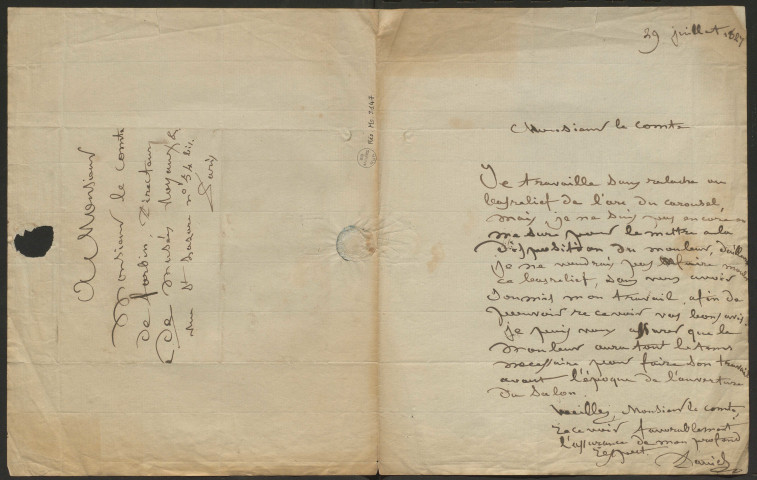 29 juillet 1827
Monsieur le comte
Je travaille sans relache au
basrelief de l'arc du carousel,
mais, je ne suis pas encore en
mesure pour le mettre a la
disposition du mouleur, d'ailleurs
je ne voudrais pas faire mouler
ce basrelief, sans vous avoir
soumis mon travail, afin de
pouvoir recevoir vos bons avis,
je puis vous assurer que le
mouleur aura tout le tems
necessaire pour faire son travail
avant l'époque de l'ouverture
du Salon.
Veuillez, Monsieur le comte,
recevoir favorablement
l'assurance de mon profond
respect.
David
A Monsieur
Monsieur le comte
de forbin. Directeur
des Musées Royaux &
rue St Lazare no 54 bis.
Paris